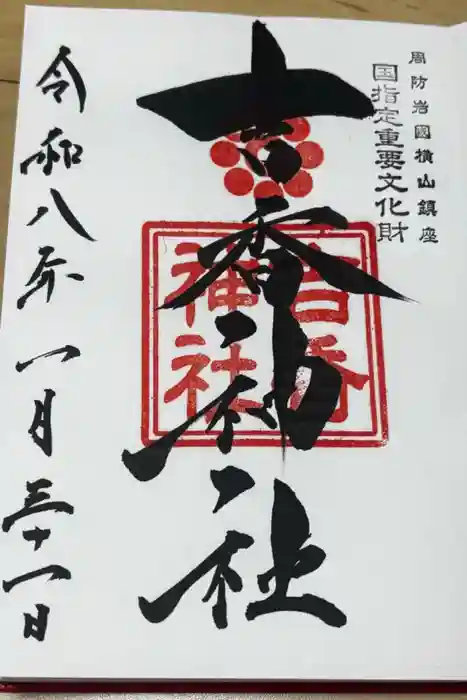 周防岩國横山鎮座
国指定重要文化財
吉香神社
吉香神社
令和八年一月三十一日